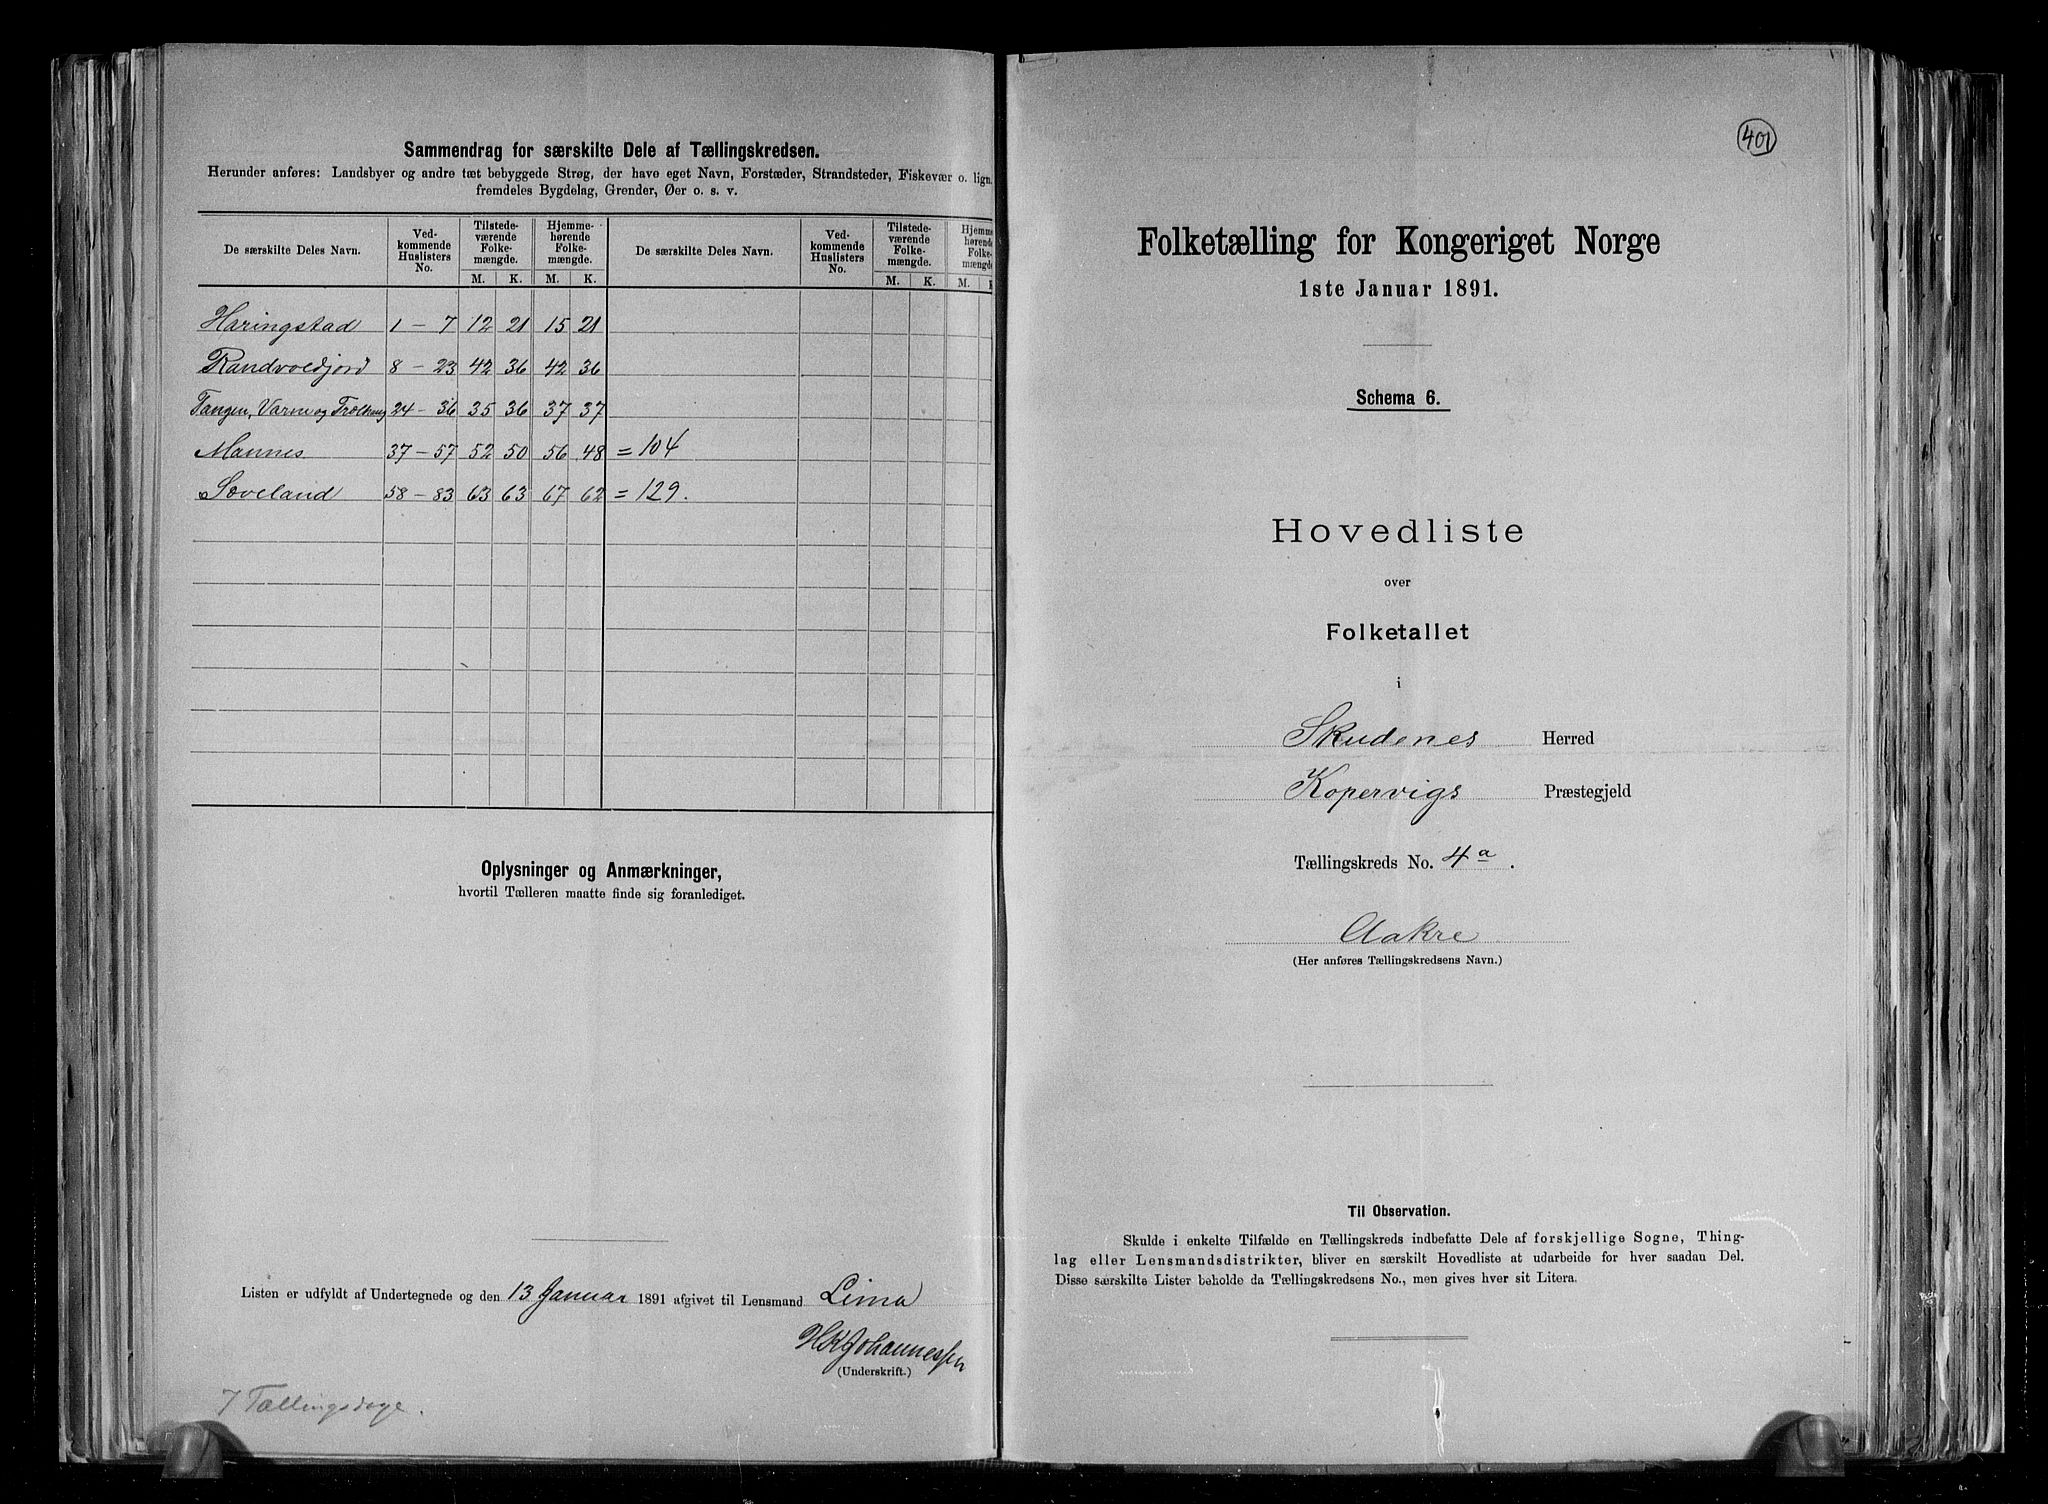 Sammendrag for særskilte Dele af Tællingskredsen.
Herunder anføres: Landsbyer og andre tæt bebyggede Strøg, der have eget Navn, Forstæder, Strandsteder, Fiskevær o. lign.
fremdeles Bygdelag, Grender, Øer o. s. v.
De særskilte Deles Navn. Ved-kommende Huslisters No. Tilstede-værende Folke-mængde. Hjemme-hørende Folke-mængde. De særskilte Deles Navn. Ved-kommende Huslisters No. Tilstede-værende Folke-mængde. Hjemme-hørende Folke-mængde
M. K. M. K. M. K. M. K
Haringstad 1 - 7 12 21 15 21
Randvoldjord 8 - 23 42 36 42 36
Tangen, Varne og 24 - 36 35 36 37 37
Mannes 37 - 57 52 50 56 48 = 104
Soveland 58 - 83 63 63 67 62 = 129.
Oplysninger og Anmærkninger,
hvortil Tælleren maatte finde sig foranlediget.
Listen er udfyldt af Undertegnede og den 13 Januar 1891 afgivet til Lensmand Lima
HKJohannessen
(Underskrift.)
7 Tællingsdage.
401
Folketælling for Kongeriget Norge
1ste Januar 1891.
Schema 6.
Hovedliste
over
Folketallet
i
Skudenes Herred
Kopervigs Præstegjeld
Tællingskreds No. 4a.
Aakre
(Her anføres Tællingskredsens Navn.)
Til Observation.
Skulde i enkelte Tilfælde en Tællingskreds indbefatte Dele af forskjellige Sogne, Thing-
lag eller Lensmandsdistrikter, bliver en særskilt Hovedliste at udarbeide for hver saadan Del.
Disse særskilte Lister beholde da Tællingskredsens No., men gives hver sit Litera.